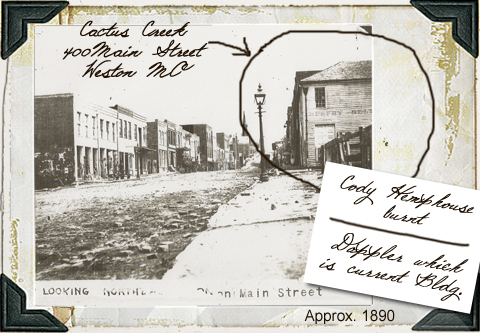 Cactus Creek
400 Main Street
Weston Mo
Cody Hemphouse
burnt
Doppler which
is current Bldg.
LOOKING Main Street
Approx. 1890